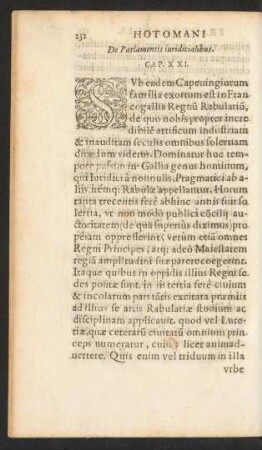 232 HOTOMANI
De Parlamentis iuridicialibus.
CAP. XXI.
SVb eadem Capeuingiorum
familia exortum est in Fran
cogallia Regnū Rabulariū,
de quo nobis propter incre
dibilē artificum industriam
& inauditam seculis omnibus solertiam
dicēdum videtur. Dominatur hoc tem
pore passim in Gallia genus hominum,
qui Iuridici à nonnulis, Pragmatici ab a-
liis, itémq; Rabulæ appellantur. Horum
tanta trecentis ferè abhinc annis fuit so
lertia, vt non modò publici cōcilij au-
ctoritatem, de qua superius diximus pro
pè iam oppresserint, verùm etiā omnes
Regni Principes, atq; adeò Maiestatem
regiā amplitudini suæ parere coegerint.
Itaque quibus in oppidis illius Regni se-
des positæ sunt, in iis tertia ferè ciuium
& incolarum pars tātis excitata præmiis
ad illius se artis Rabulariæ studium ac
disciplinam applicauit. quod vel Lute-
tiæ, quæ ceterarū ciuitatū omnium prin
ceps numeratur, cuiq; licet animad-
uertere. Quis enim vel triduum in illa
vrbe